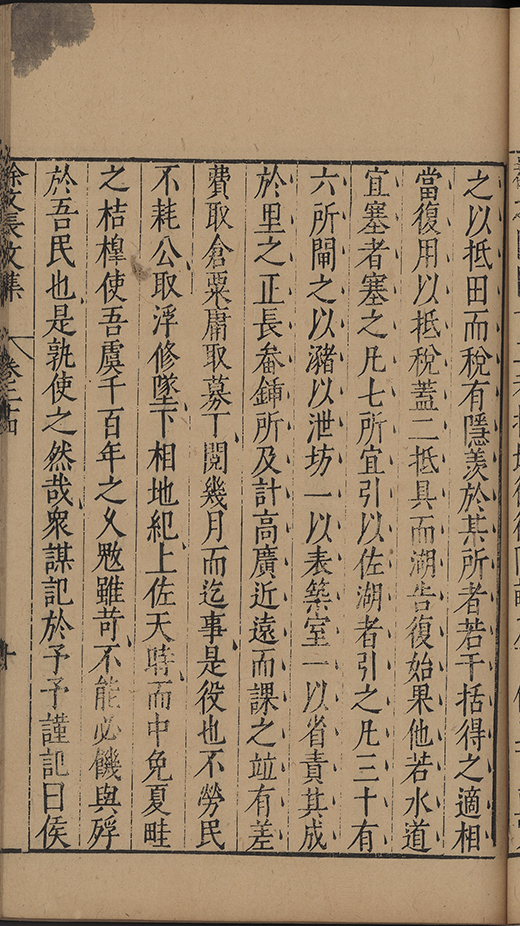 之以抵田而稅有隱羨於某所者若干括得之適相
當復用以抵稅蓋二抵具而湖告復始果他若水道
宜塞者塞之凡七所宜引以佐湖者引之凡三十有
六所閘之以瀦以泄坊一以表築室一以省責其成
於里之正長畚鍤所及計高廣近遠而課之竝有差
費取倉粟庸取募丁閱幾月而迄事是役也不勞民
不耗公取浮修墜下相地紀上佐天時而中免夏畦
之桔橰使吾虞千百年之乆尠雖苛不能必饑與殍
於吾民也是孰使之然哉衆謀記於予予謹記曰侯
徐文長文集 卷之二十四